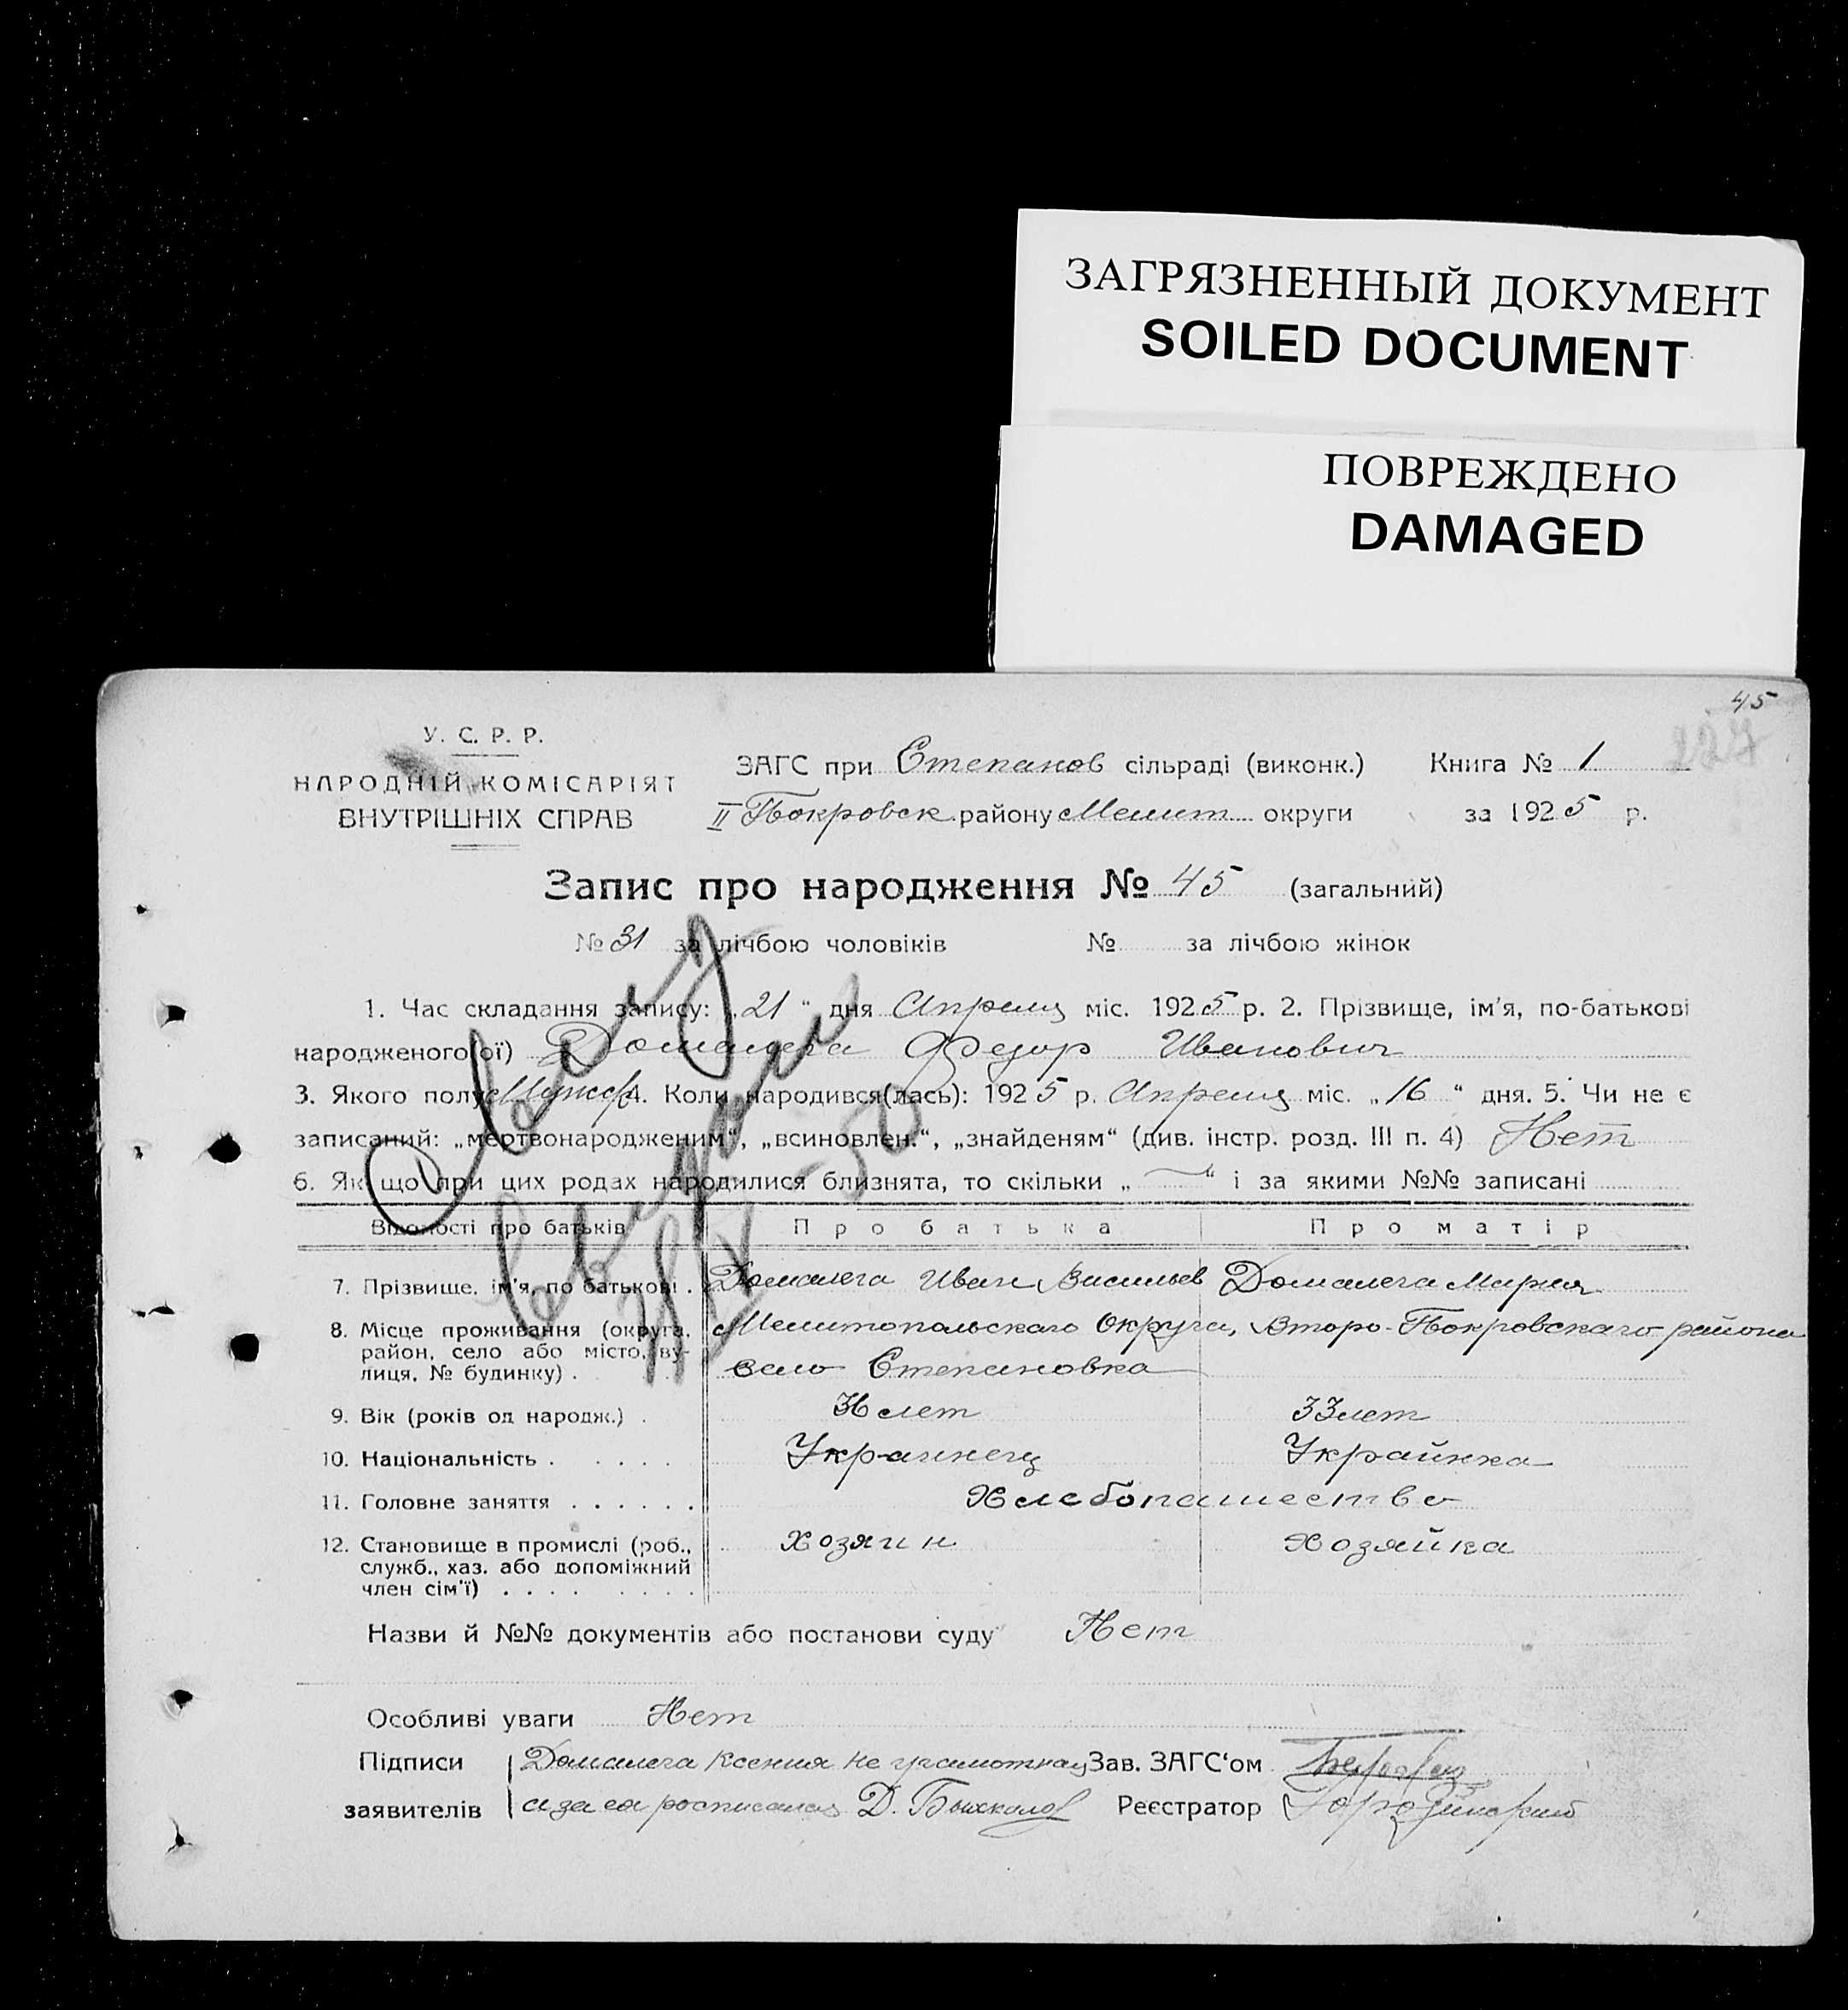 ЗАГРЯЗНЕННЫЙ ДОКУМЕНТ
SOILED DOCUMENT
ПОВРЕЖДЕНО
DAMAGED
45
227
У. С. Р. Р.
НАРОДНІЙ КОМІСАРІЯТ
ВНУТРІШНІХ СПРАВ
ЗАГС при Степанов сільраді (виконк.) Книга № 1
II Покровск району Мелит округи за 1925 р.
Запис про народження № 45 (загальний)
№ 31 за лічбою чоловіків № за лічбою жінок
1. Час складання запису: „21“ дня Апреля міс. 1925 р. 2. Прізвище, ім'я, по-батькові
народженого(ої) Домалега Федор Иванович
3. Якого полу Мужск 4. Коли народився(лась): 1925 р. Апреля міс. „16“ дня. 5. Чи не є
записаний: „мертвонародженим“, „всиновлен.“, „знайденям“ (див. інстр. розд. III п. 4) Нет
6. Як що при цих родах народилися близнята, то скільки „ “ і за якими №№ записані
Відомості про батьків Про батька Про матір
7. Прізвище, ім'я, по батькові . Домалега Иван Васильев Домалега Мария
8. Місце проживання (округа, Мелитопольскаго Округа, Второ-Покровскаго района
район, село або місто, ву-
лиця, № будинку) . село Степановка
9. Вік (років од народж.) . лет 33 лет
10. Національність . . . . . Украинец Украинка
11. Головне заняття . . . . . . Хлебопашество
12. Становище в промислі (роб., хозяин Хозяйка
служб., хаз. або допоміжний
член сім'ї) . . . . . . . .
Назви й №№ документів або постанови суду Нет
Особливі уваги Нет
Підписи Домалега Ксения не грамотная Зав. ЗАГС'ом
заявителів а за ея росписался Д. Реєстратор